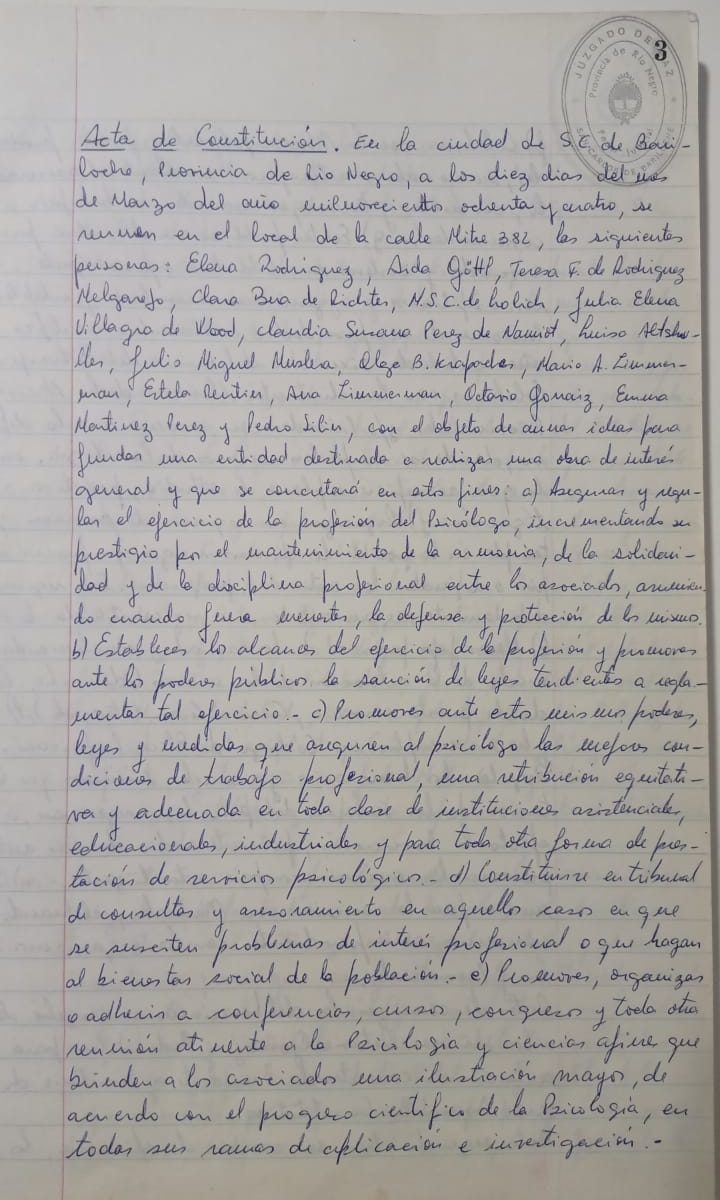 3
JUZGADO DE PAZ
Provincia de Río Negro
Poder Judicial
SAN CARLOS DE BARILOCHE
Acta de Constitución. En la ciudad de S.C. de Bari-
loche, Provincia de Río Negro, a los diez dias del mes
de Marzo del año milnovecientos ochenta y cuatro, se
reunen en el local de la calle Mitre 382, las siguientes
personas: Elena Rodriguez, Aida Göttl, Teresa F. de Rodriguez
Melgarejo, Clara Bua de Richter, M.S.C. de Lolich, Julia Elena
Villagra de Wood, Claudia Susana Perez de Namiot, Luisa Altshu-
ller, Julio Miguel Muslera, Olga B. Mario A. Zimmer-
man, Estela Ana Zimmerman, Octavio Emma
Martinez Perez y Pedro con el objeto de aunar ideas para
fundar una entidad destinada a realizar una obra de interés
general y que se concretará en estos fines: a) Asegurar y regu-
lar el ejercicio de la profesión del Psicólogo, incrementando su
prestigio por el mantenimiento de la armonia, de la solidari-
dad y de la disciplina profesional entre los asociados, asumien-
do cuando fuera menester, la defensa y protección de los mismos.
b) Establecer los alcances del ejercicio de la profesión y promover
ante los poderes públicos la sanción de leyes tendientes a regla-
mentar tal ejercicio.- c) Promover ante estos mismos poderes,
leyes y medidas que aseguren al psicólogo las mejores con-
diciones de trabajo profesional, una retribución equitati-
va y adecuada en toda clase de instituciones asistenciales,
educacionales, industriales y para toda otra forma de pres-
tación de servicios psicológicos.- d) Constituirse en tribunal
de consultas y asesoramiento en aquellos casos en que
se susciten problemas de interés profesional o que hagan
al bienestar social de la población.- e) Promover, organizar
o adherir a conferencias, cursos, congresos y toda otra
reunión atinente a la Psicología y ciencias afines que
brinden a los asociados una ilustración mayor, de
acuerdo con el progreso científico de la Psicología, en
todas sus ramas de aplicación e investigación.-